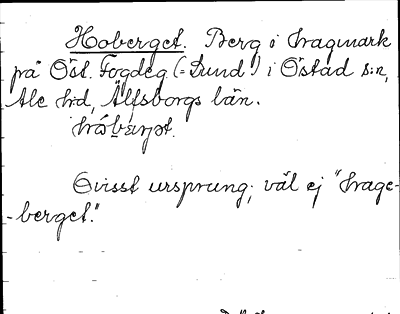 Hoberget. Berg i hagmark
på Öst. Fogdeg (= Lund!) i Östad s:n,
Ale h:d, Älfsborgs län.
Ovisst ursprung; väl ej "hage-
-berget."